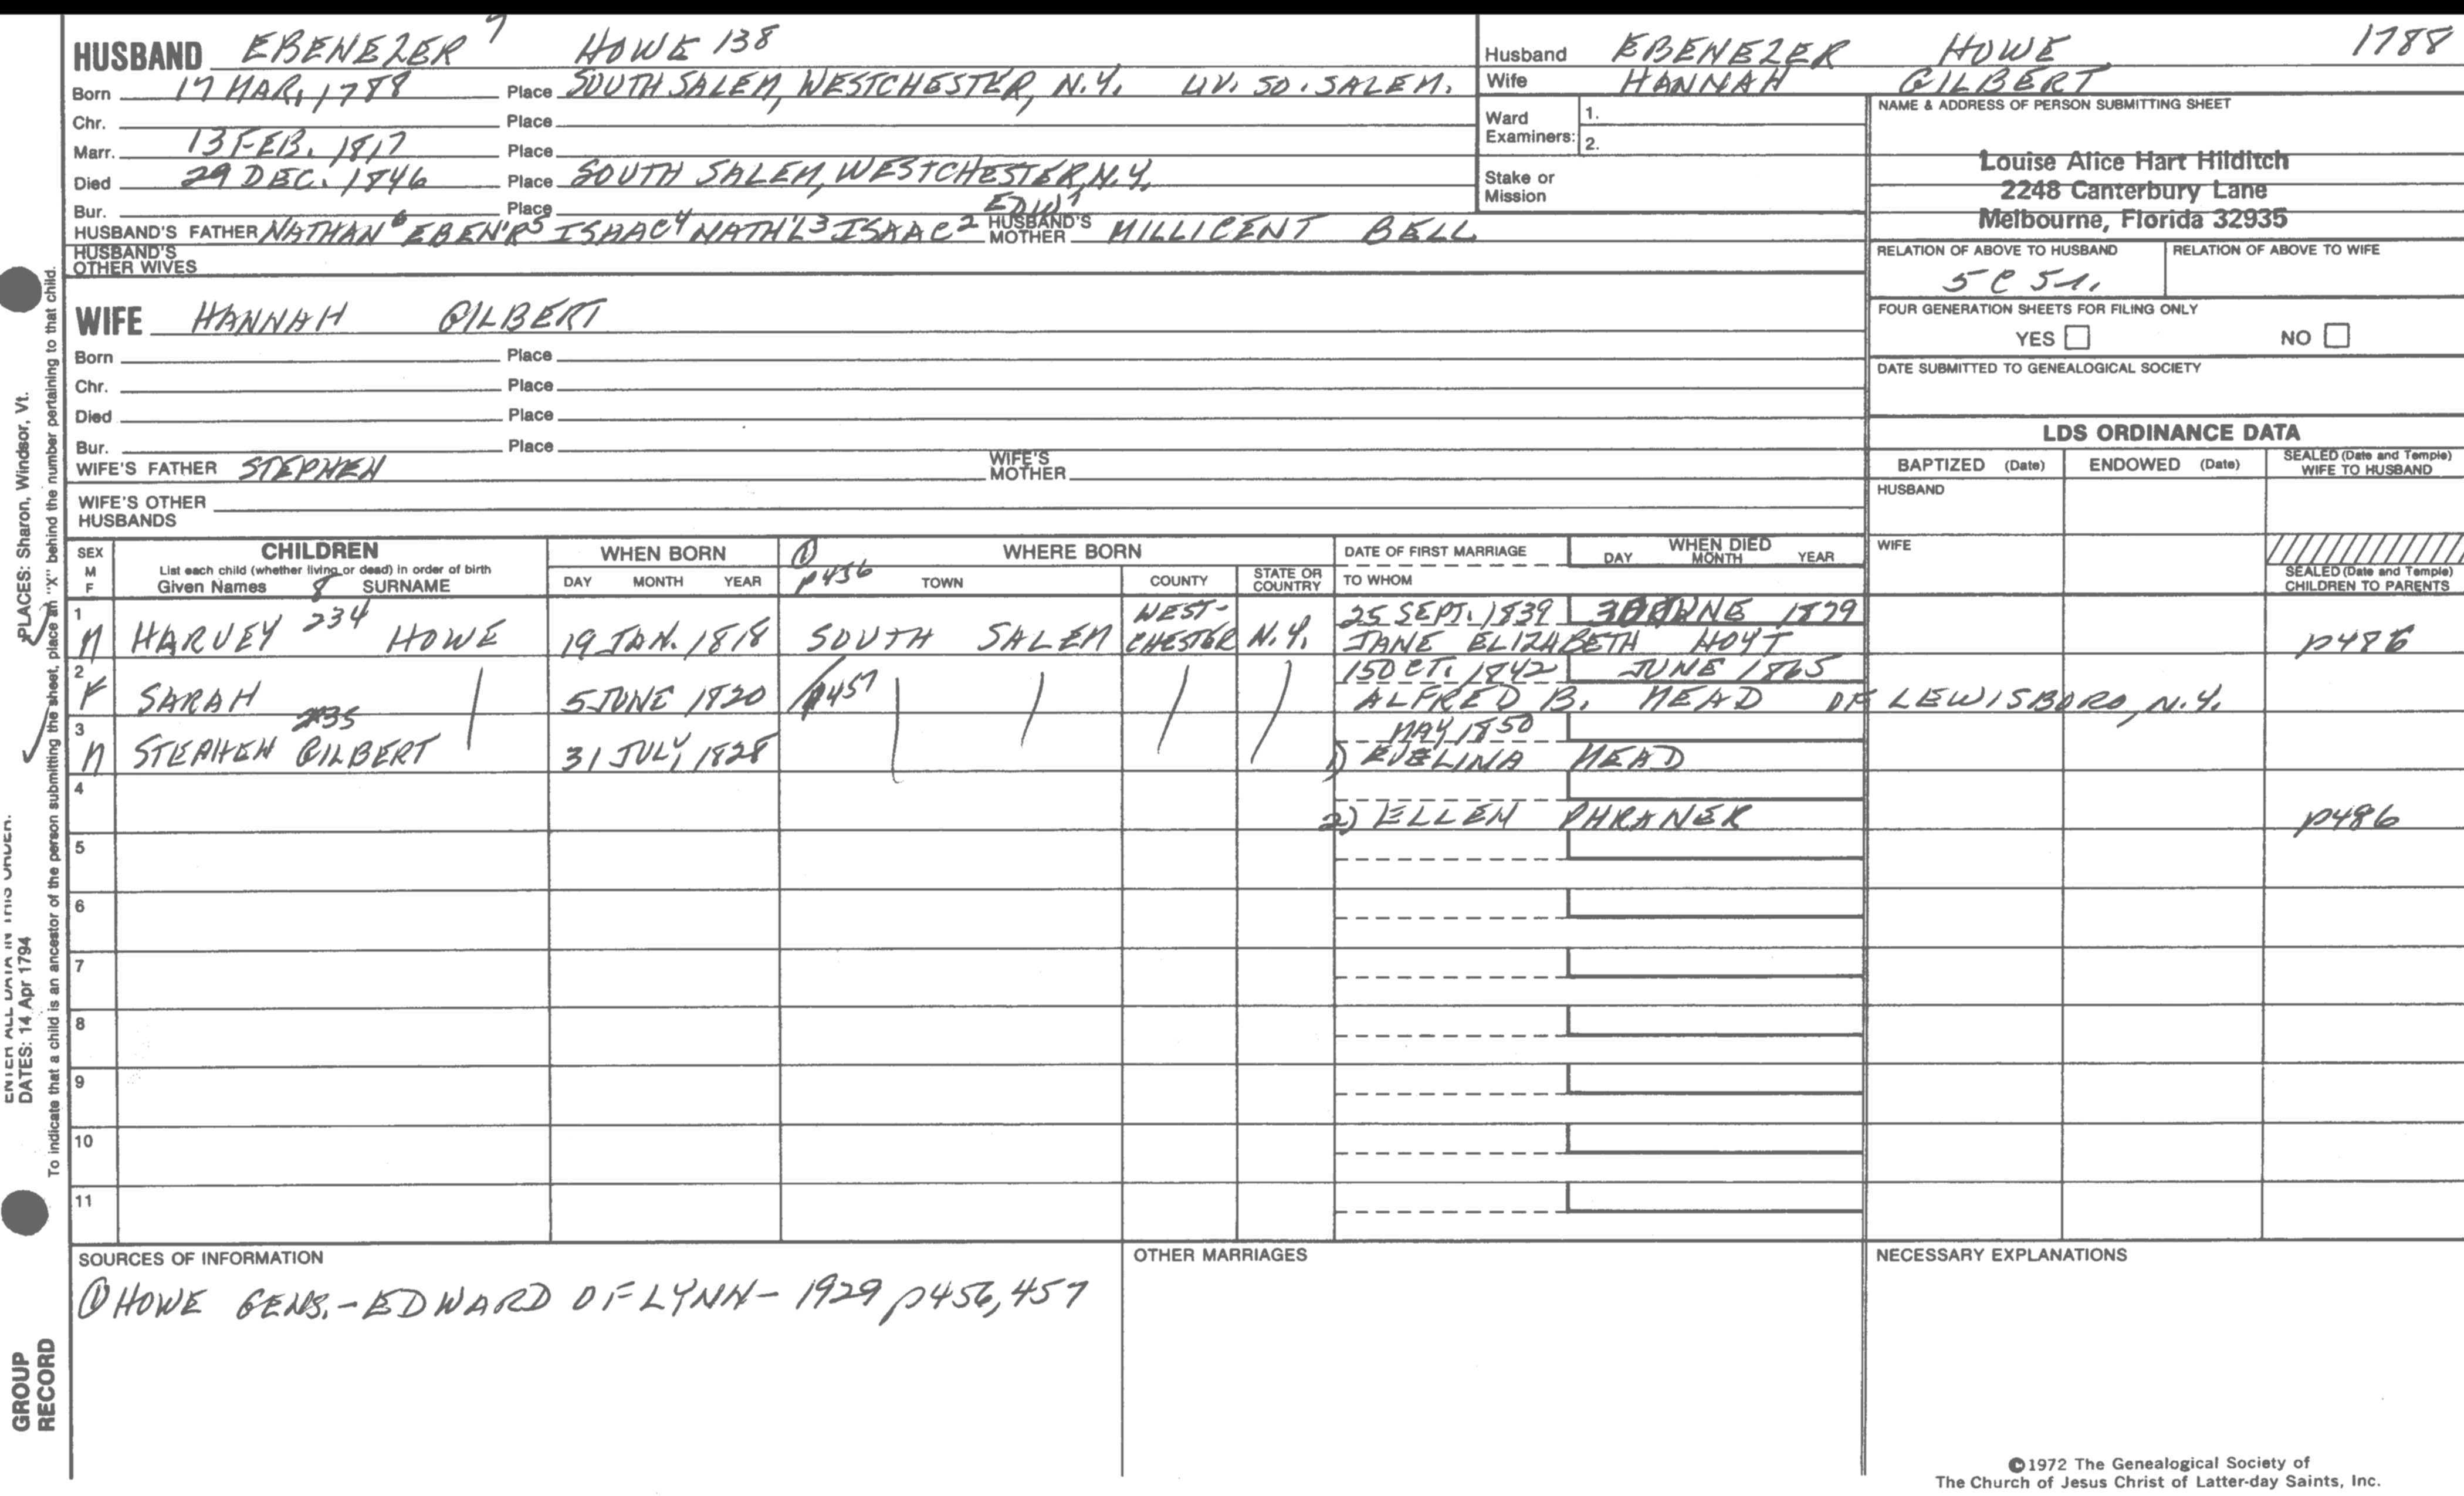 HUSBAND EBENEZER 7 HOWE 138
Born 17 MAR. 1788 Place SOUTH SALEM, WESTCHESTER, N.Y. LIV. SO. SALEM.
Chr. Place
Marr. 13 FEB. 1817 Place
Died 29 DEC. 1846 Place SOUTH SALEM, WESTCHESTER, N.Y.
Bur. Place
HUSBAND'S FATHER NATHAN 6 EBEN'R 5 ISAAC 4 NATH'L 3 ISAAC 2 EDW 1 HUSBAND'S MOTHER MILLICENT BELL
HUSBAND'S OTHER WIVES
Husband EBENEZER HOWE 1788
Wife HANNAH GILBERT
Ward Examiners: 1.
2.
Stake or Mission
NAME & ADDRESS OF PERSON SUBMITTING SHEET
Louise Alice Hart Hilditch
2248 Canterbury Lane
Melbourne, Florida 32935
RELATION OF ABOVE TO HUSBAND RELATION OF ABOVE TO WIFE
5C5r.
FOUR GENERATION SHEETS FOR FILING ONLY
YES NO
DATE SUBMITTED TO GENEALOGICAL SOCIETY
WIFE HANNAH GILBERT
Born Place
Chr. Place
Died Place
Bur. Place
WIFE'S FATHER STEPHEN WIFE'S MOTHER
WIFE'S OTHER HUSBANDS
LDS ORDINANCE DATA
BAPTIZED (Date) ENDOWED (Date) SEALED (Date and Temple) WIFE TO HUSBAND
HUSBAND
WIFE
SEALED (Date and Temple) CHILDREN TO PARENTS
SEX M F
CHILDREN
List each child (whether living or dead) in order of birth
Given Names 8 SURNAME
WHEN BORN
DAY MONTH YEAR
① p456
WHERE BORN
TOWN COUNTY STATE OR COUNTRY
DATE OF FIRST MARRIAGE
TO WHOM
WHEN DIED
DAY MONTH YEAR
1 M HARVEY 234 HOWE 19 JAN. 1818 SOUTH SALEM WEST-CHESTER N.Y. 25 SEPT. 1839 30 JUNE 1879
JANE ELIZABETH HOYT p486
2 F SARAH 5 JUNE 1820 p457 15 OCT. 1842 JUNE 1865
ALFRED B. MEAD OF LEWISBORO, N.Y.
3 M STEPHEN GILBERT 235 31 JULY 1828 MAY 1850
1) EVELINA MEAD
4
2) ELLEN PHRANER p486
5
6
7
8
9
10
11
SOURCES OF INFORMATION
① HOWE GENS. - EDWARD OF LYNN - 1929 p456, 457
OTHER MARRIAGES
NECESSARY EXPLANATIONS
©1972 The Genealogical Society of
The Church of Jesus Christ of Latter-day Saints, Inc.
PLACES: Sharon, Windsor, Vt.
ENTER ALL DATA IN THIS ORDER:
DATES: 14 Apr 1794
To indicate that a child is an ancestor of the person submitting the sheet, place an "X" behind the number pertaining to that child.
GROUP
RECORD